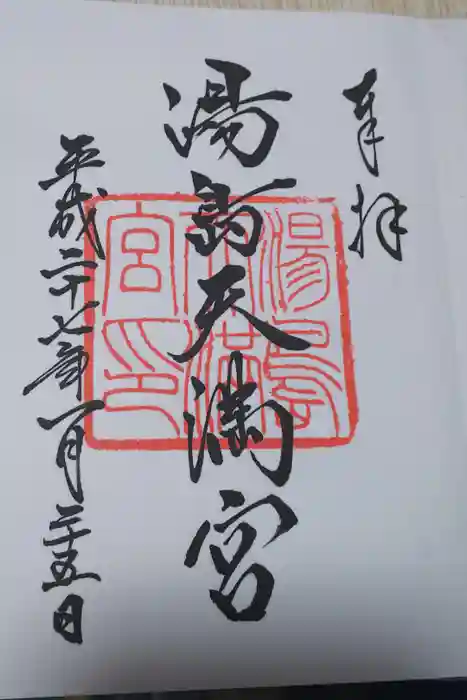 奉拝
湯島天満宮
平成二十七年一月二十五日
湯島天満宮印